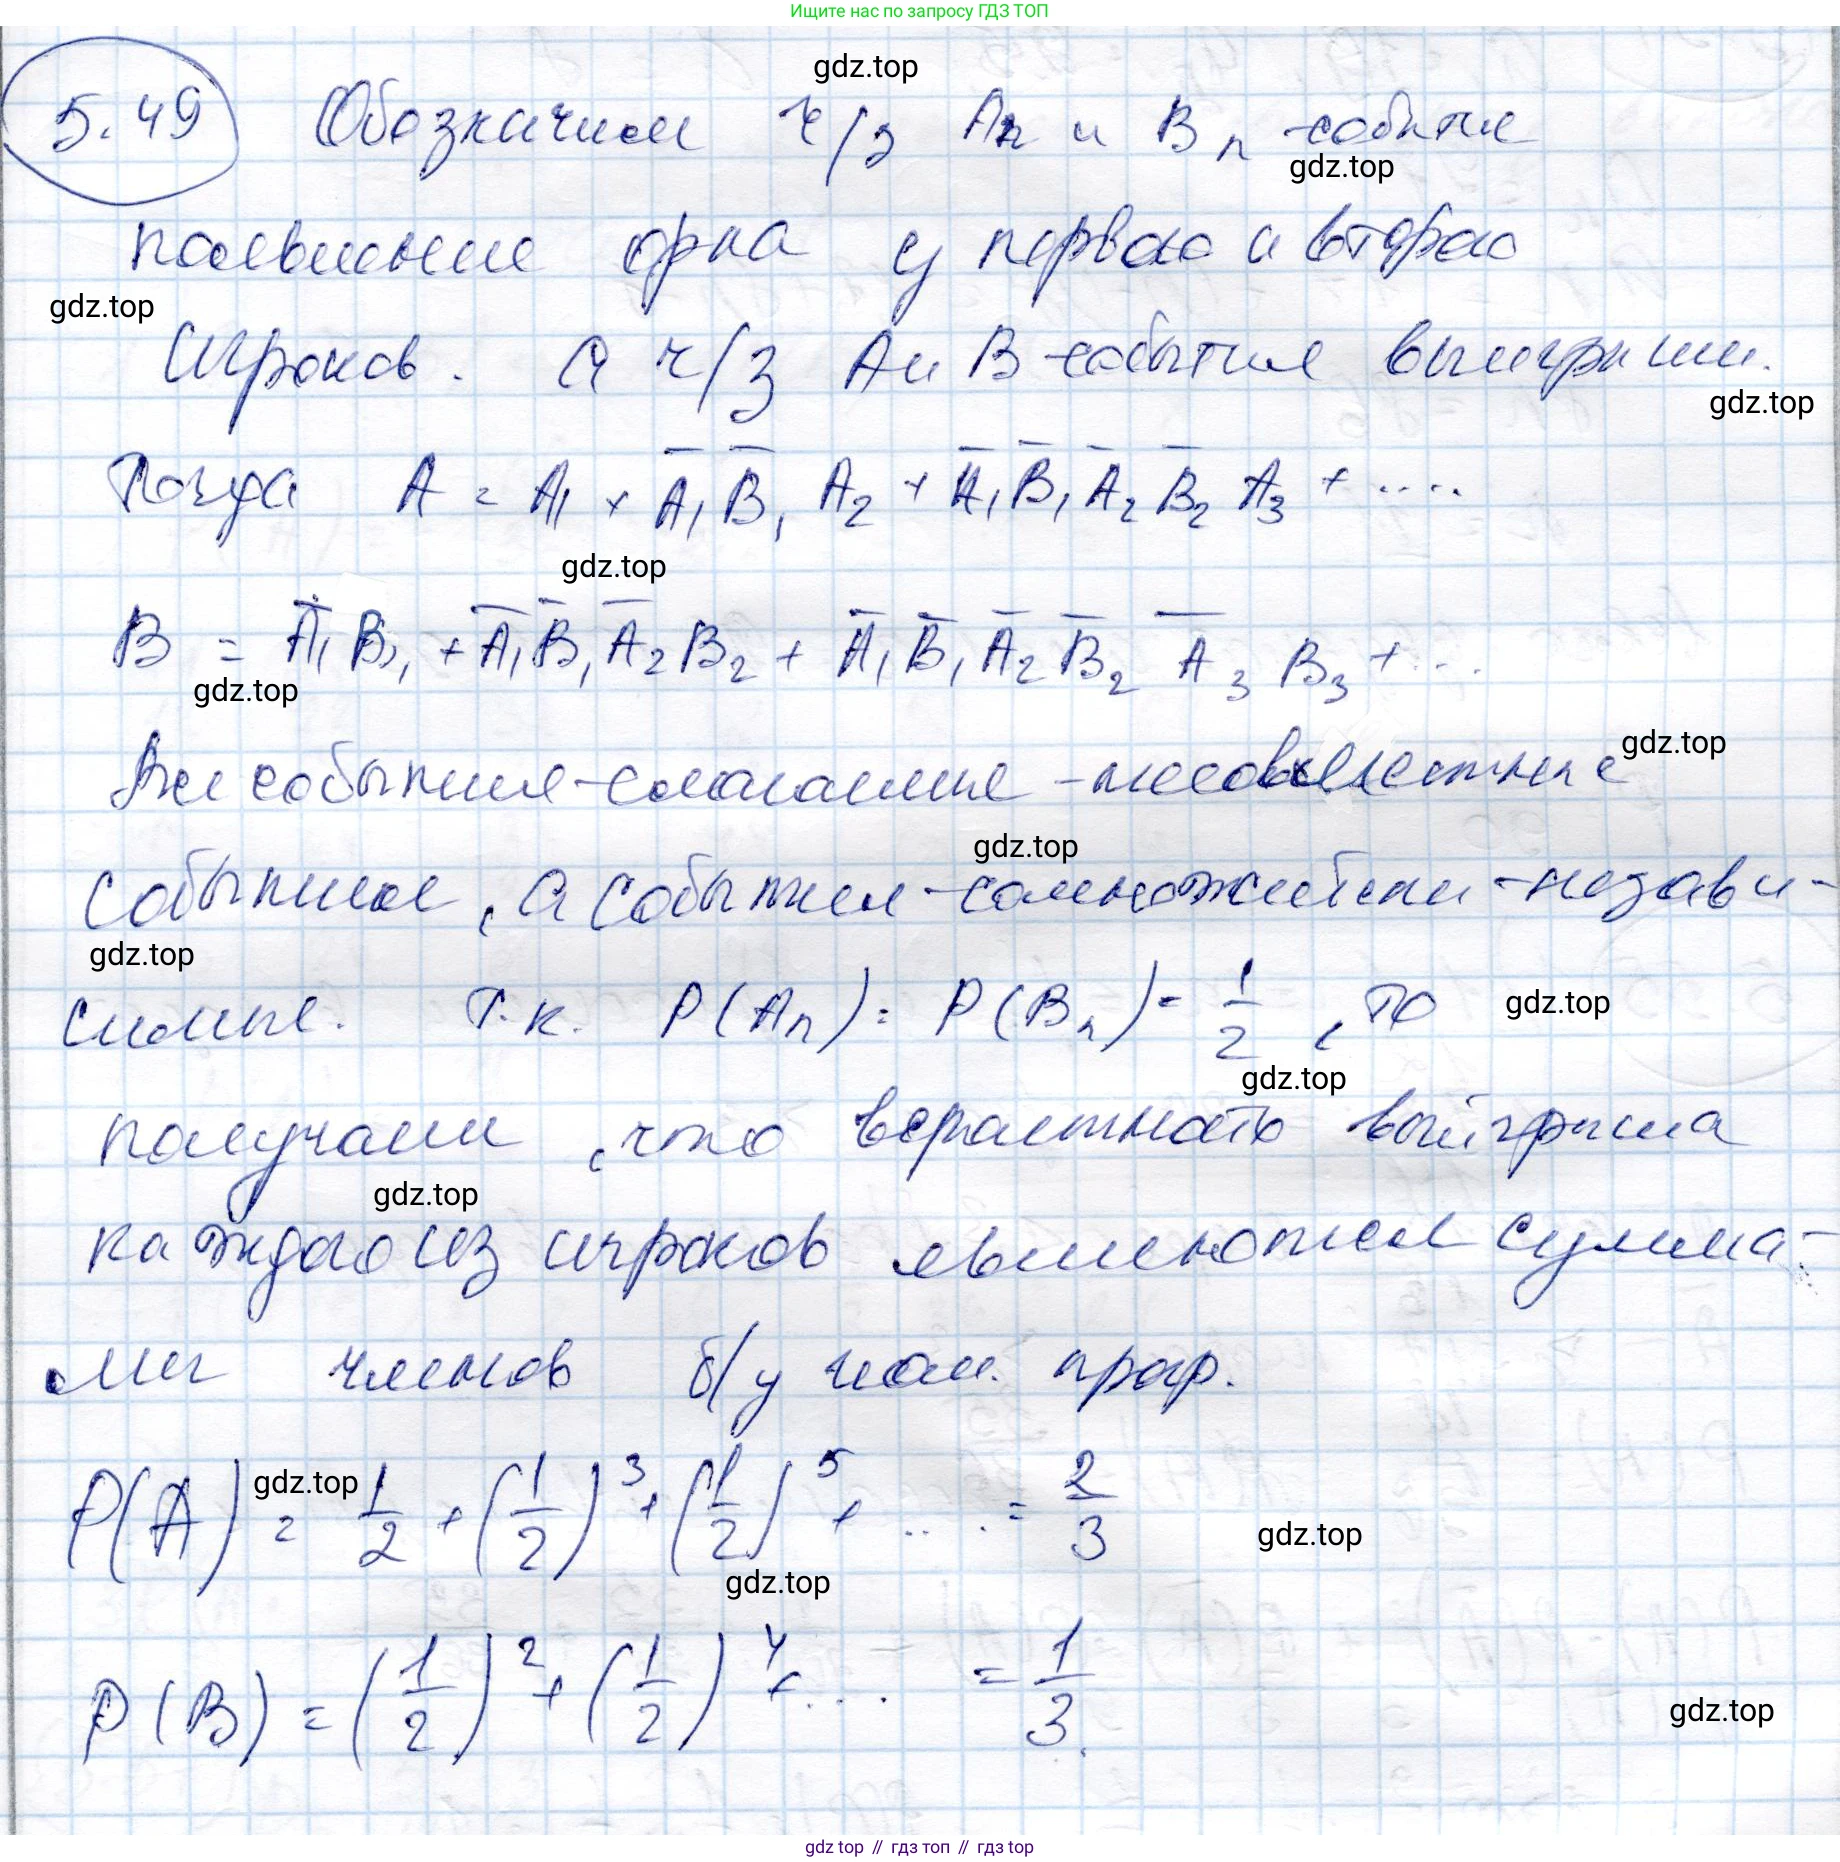 Ищите нас по запросу ГДЗ ТОП
gdz.top
5.49 Обозначим ч/з Aₙ и Bₙ - события
gdz.top
появления орла у первого и второго
gdz.top
игроков. а ч/з A и B - события выигрыши.
gdz.top
Тогда A = A₁ + A̅₁B̅₁A₂ + A̅₁B̅₁A̅₂B̅₂A₃ + ....
gdz.top
B = A̅₁B₁ + A̅₁B̅₁A̅₂B₂ + A̅₁B̅₁A̅₂B̅₂A̅₃B₃ + ...
gdz.top
Все события-слагаемые - несовместные
gdz.top
gdz.top
события, а события-сомножители - незави-
gdz.top
симые. т.к. P(Aₙ) = P(Bₙ) = 1/2, то
gdz.top
gdz.top
получаем, что вероятность выйгрыша
gdz.top
каждого из игроков являются сумма-
ми членов б/у геом. прогр.
P(A) = 1/2 + (1/2)³ + (1/2)⁵ + .... = 2/3
gdz.top
gdz.top
gdz.top
P(B) = (1/2)² + (1/2)⁴ + ... = 1/3.
gdz.top
gdz top // гдз топ // гдз top